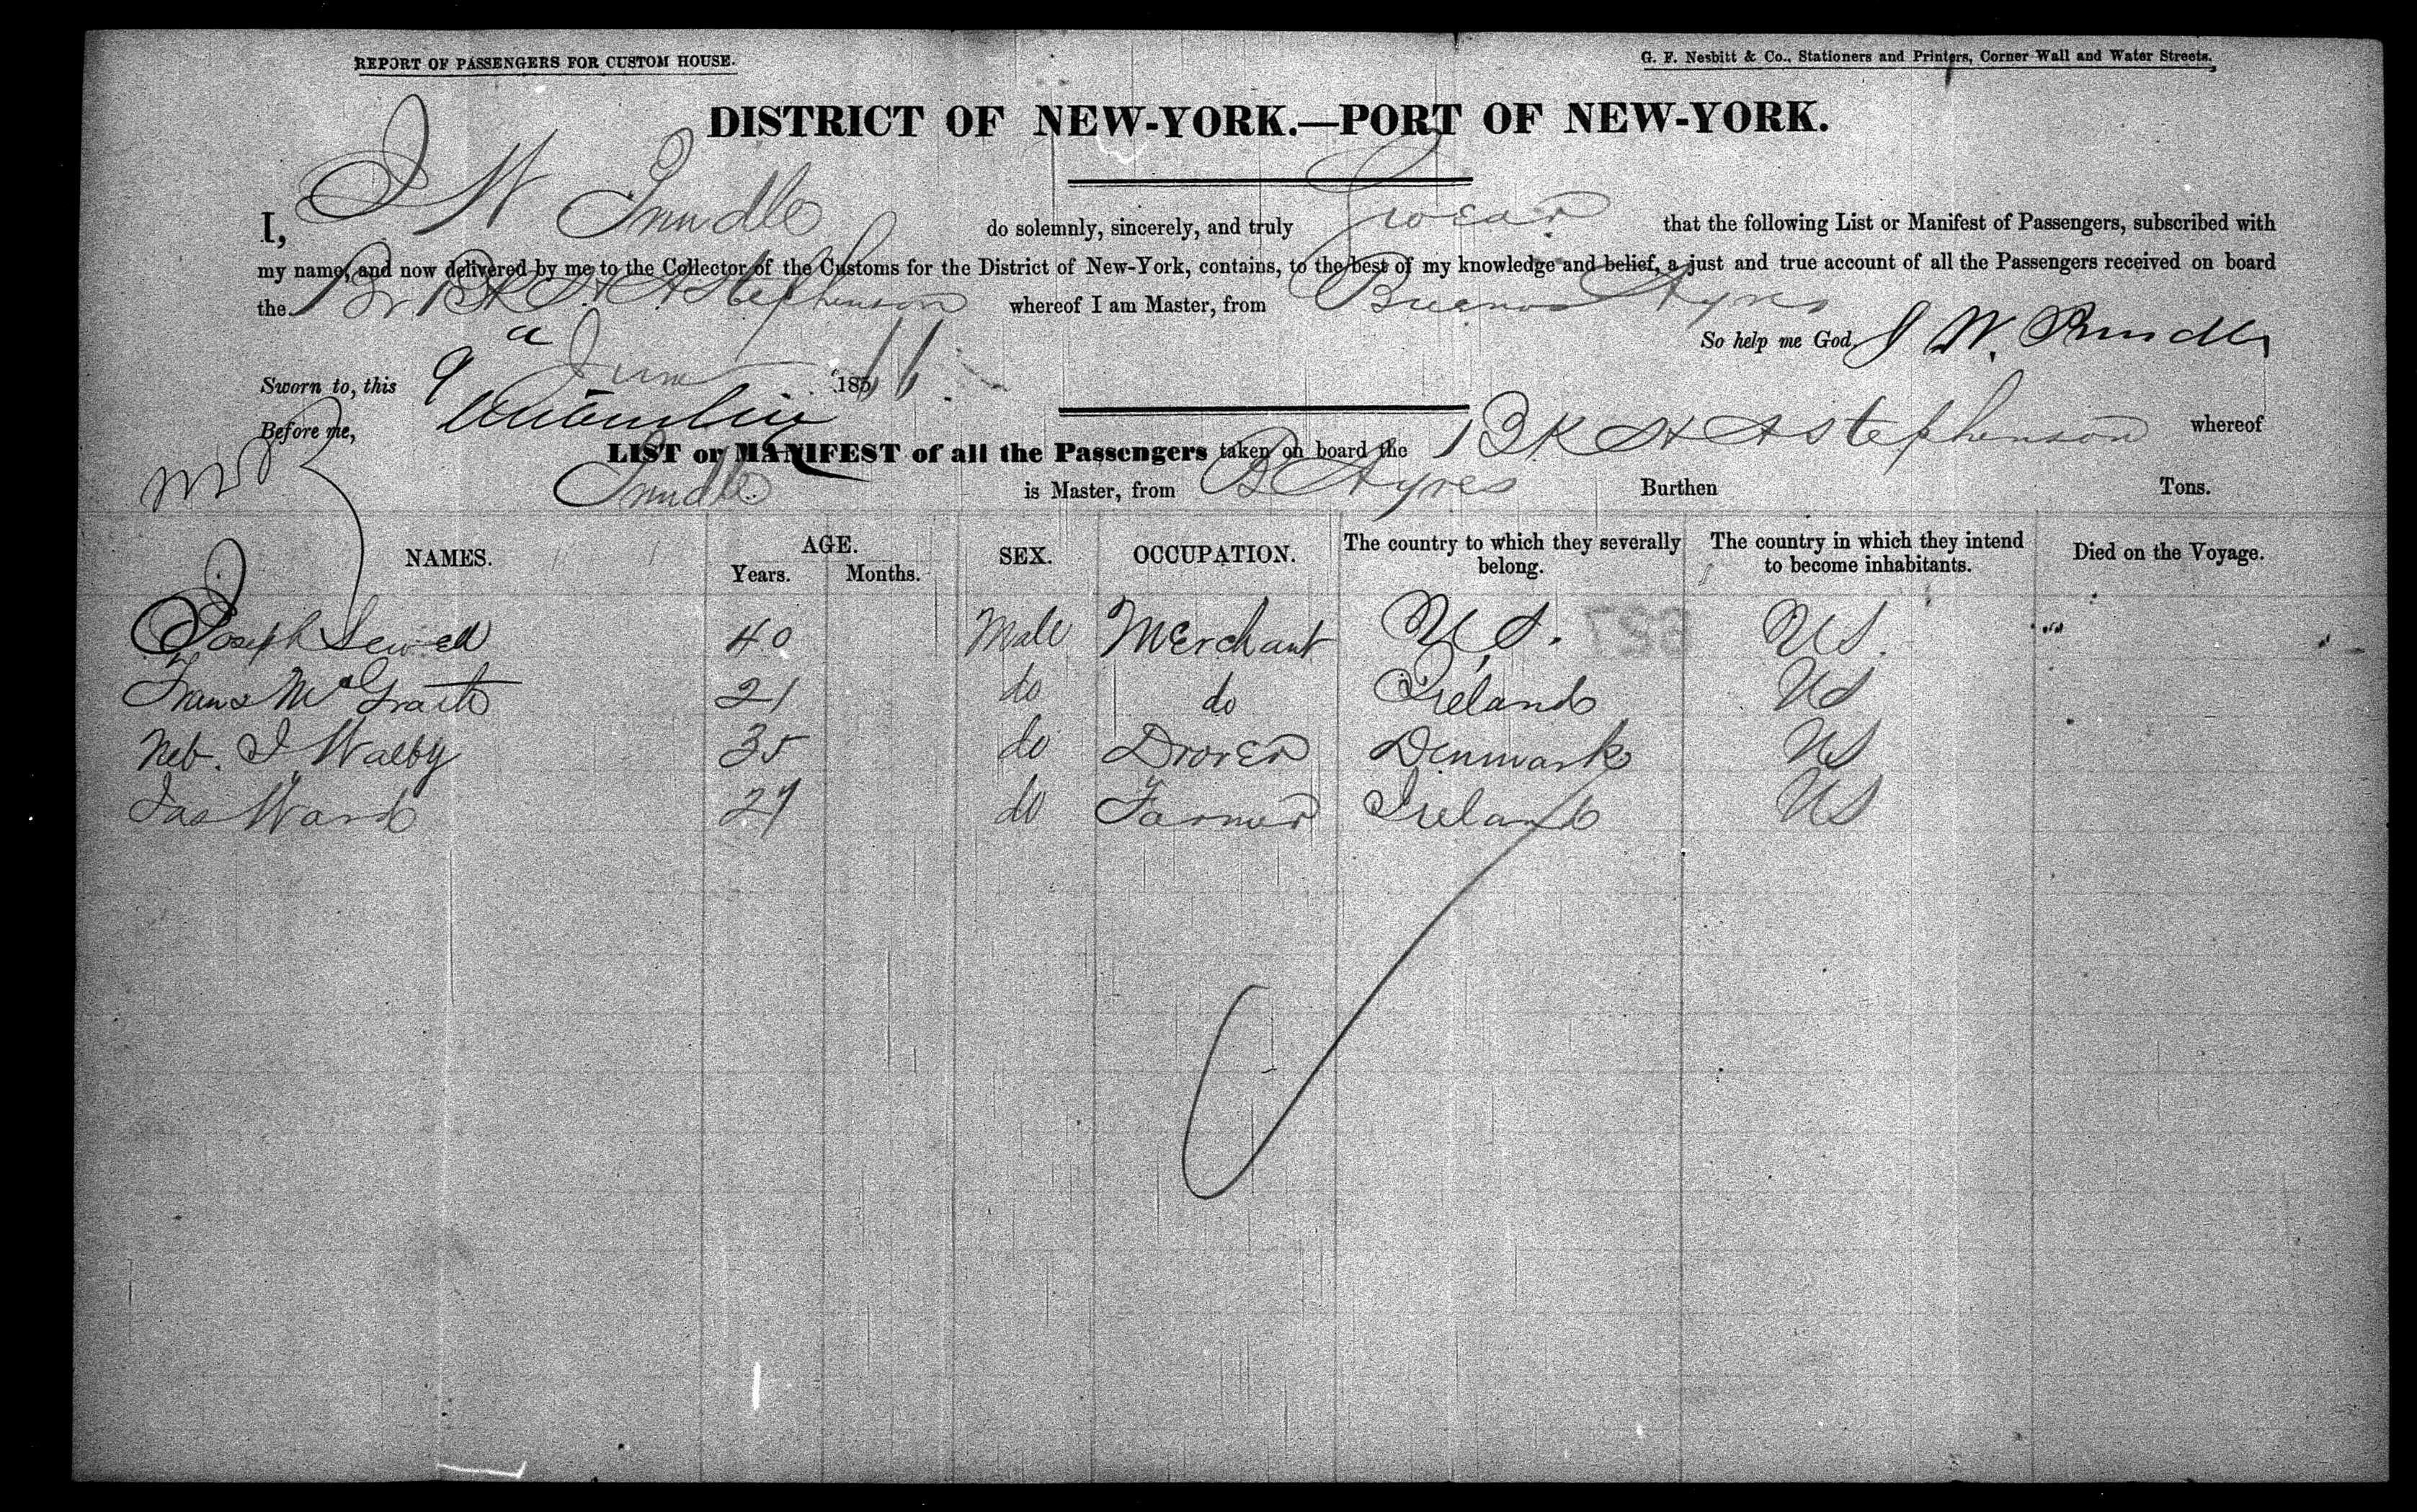 REPORT OF PASSENGERS FOR CUSTOM HOUSE.
G. F. Nesbitt & Co., Stationers and Printers, Corner Wall and Water Streets.
DISTRICT OF NEW-YORK.—PORT OF NEW-YORK.
I, J W do solemnly, sincerely, and truly Swear that the following List or Manifest of Passengers, subscribed with
my name, and now delivered by me to the Collector of the Customs for the District of New-York, contains, to the best of my knowledge and belief, a just and true account of all the Passengers received on board
the Br Bk H A Stephenson whereof I am Master, from Buenos Ayres
So help me God. J W.
Sworn to, this 9 June 186
Before me,
LIST or MANIFEST of all the Passengers taken on board the Bk H A Stephenson whereof
is Master, from B Ayres Burthen Tons.
NAMES. AGE. Years. Months. SEX. OCCUPATION. The country to which they severally belong. The country in which they intend to become inhabitants. Died on the Voyage.
Joseph Sewell 40 Male Merchant U.S. US.
McGrath 21 do do Ireland US
Neb. J Walby 35 do Drover Denmark US
Jas Ward 27 do Farmer Ireland US